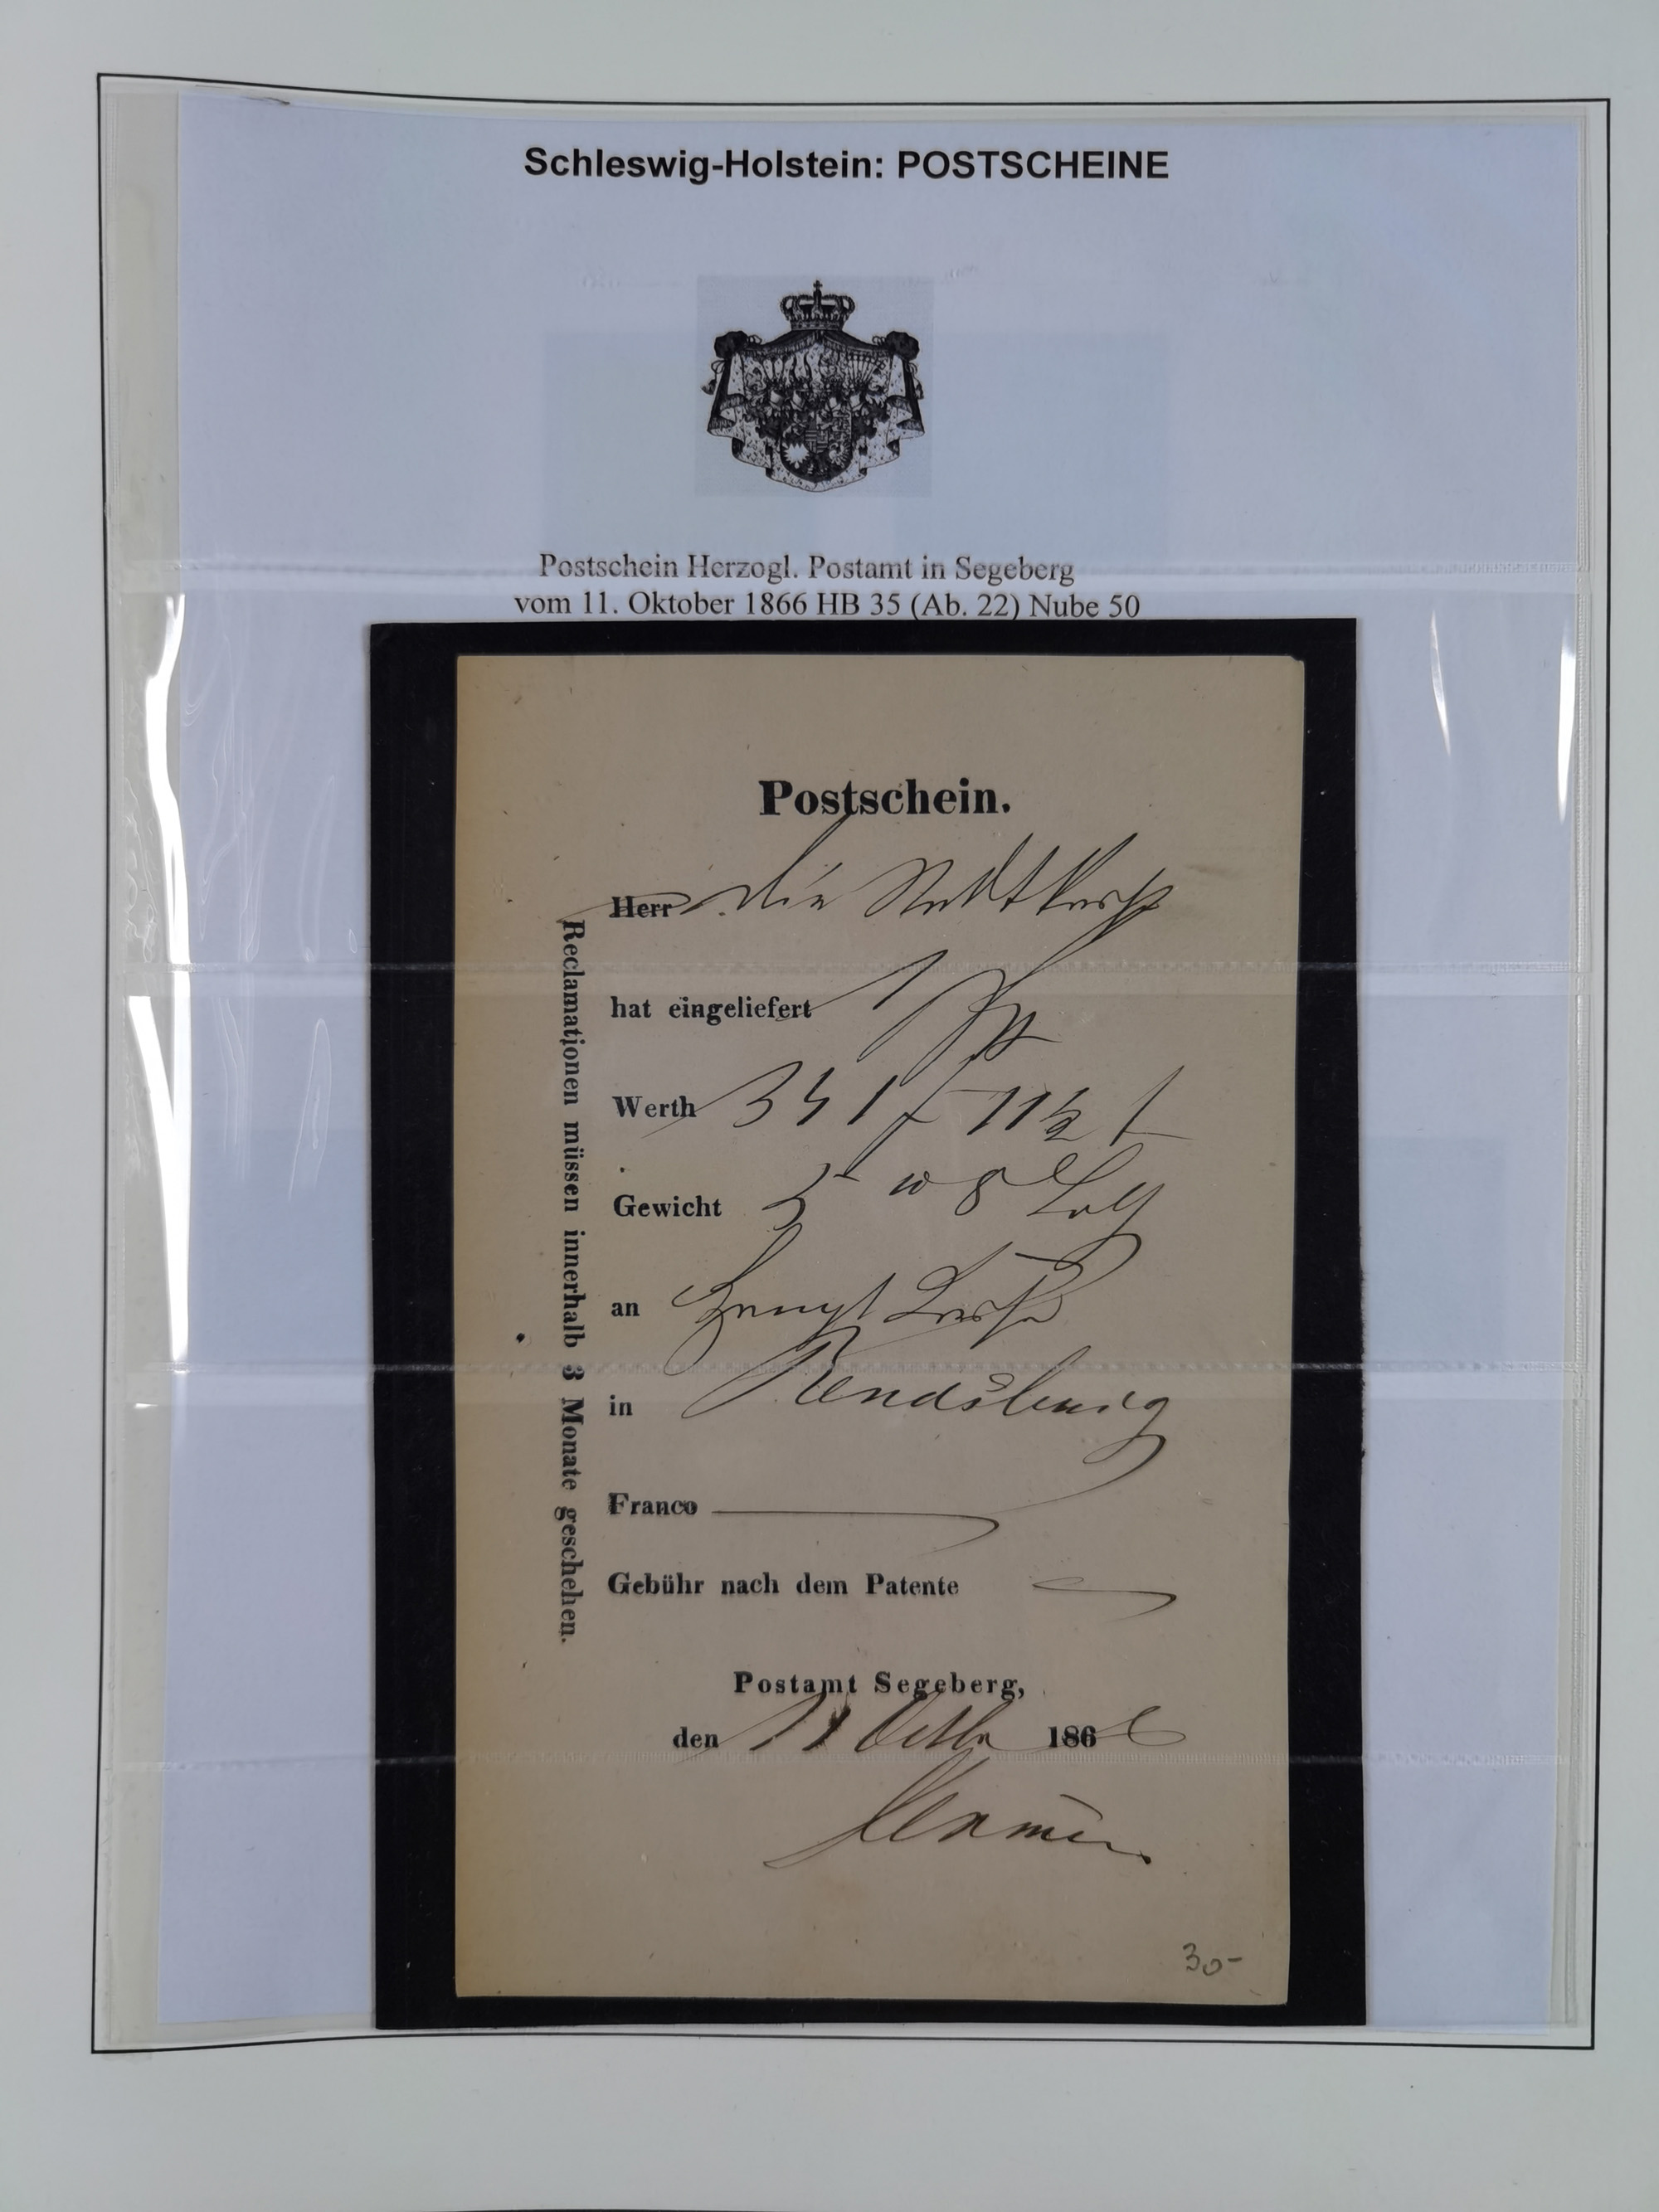 Schleswig-Holstein: POSTSCHEINE
Postschein Herzogl. Postamt in Segeberg
vom 11. Oktober 1866 HB 35 (Ab. 22) Nube 50
Postschein.
Herr die Stadtkasse
hat eingeliefert 1
Werth 341 11½
Gewicht 5 8 Loth
an Haupt Casse
in Rendsburg
Franco
Gebühr nach dem Patente
Postamt Segeberg,
den 11 Octbr 1866
Reclamationen müssen innerhalb 3 Monate geschehen.
30-